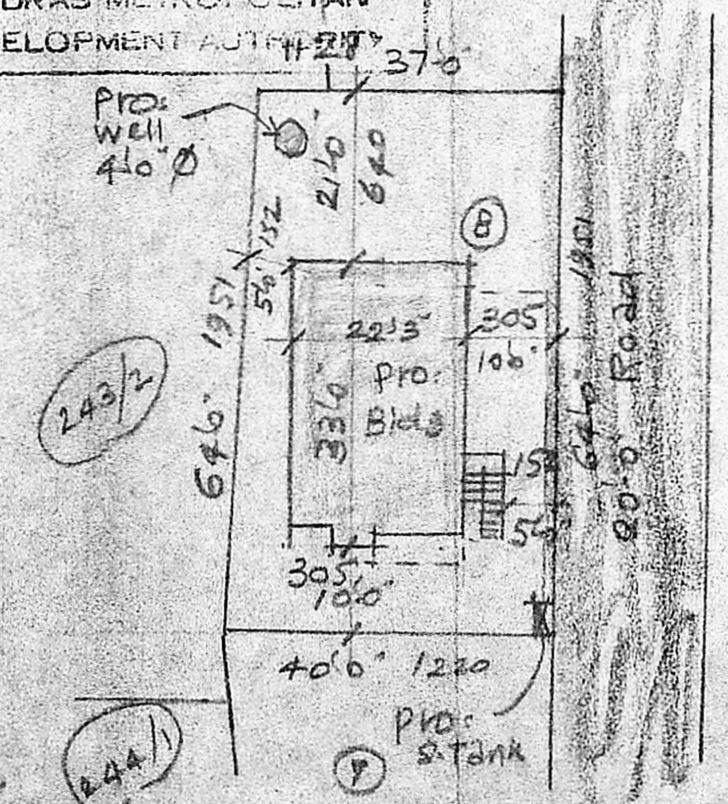 DRAS METROPOLITAN
ELOPMENT AUTHORITY
37'0"
Pro:
well
4'0" Ø
21'0"
640
152
5'0"
B
1951
64'0"
243/2
22'3"
33'0"
Pro:
Bldg
305
10'0"
1951
64'0"
20'0" Road
15
5'0"
305
10'0"
40'0" 1220
Pro:
S.Tank
244/1